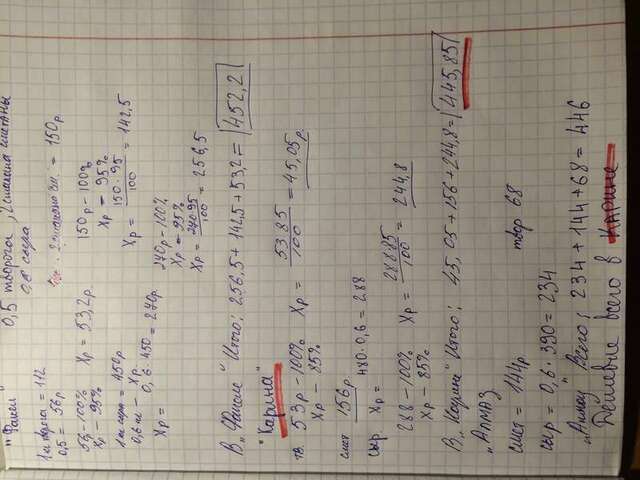 "Факел" 0,5 творога, 2 стакана сметаны
0,6 сыра
1 кг творога = 112
0,5 = 56р
2 стакана см. = 150р.
56р - 100%
Xр - 95%
Xр = 53,2р.
150р - 100%
Xр - 95%
Xр = 150·95/100 = 142,5
1 кг сыра = 450р
0,6 кг - Xр.
Xр = 0,6·450 = 270р.
270р - 100%
Xр - 95%
Xр = 270·95/100 = 256,5
В „Факеле" Итого: 256,5 + 142,5 + 53,2 = 452,2
"Карина"
тв. 53р - 100%
Xр - 85%
Xр = 53·85/100 = 45,05р.
смет 156р
сыр Xр = 480·0,6 = 288
288 - 100%
Xр - 85%
Xр = 288·85/100 = 244,8
В „Карине" Итого: 45,05 + 156 + 244,8 = 445,85
„Алмаз
смет = 144р твор 68
сыр = 0,6·390 = 234
„Алмаз" Всего: 234 + 144 + 68 = 446
Дешевле всего в Карине